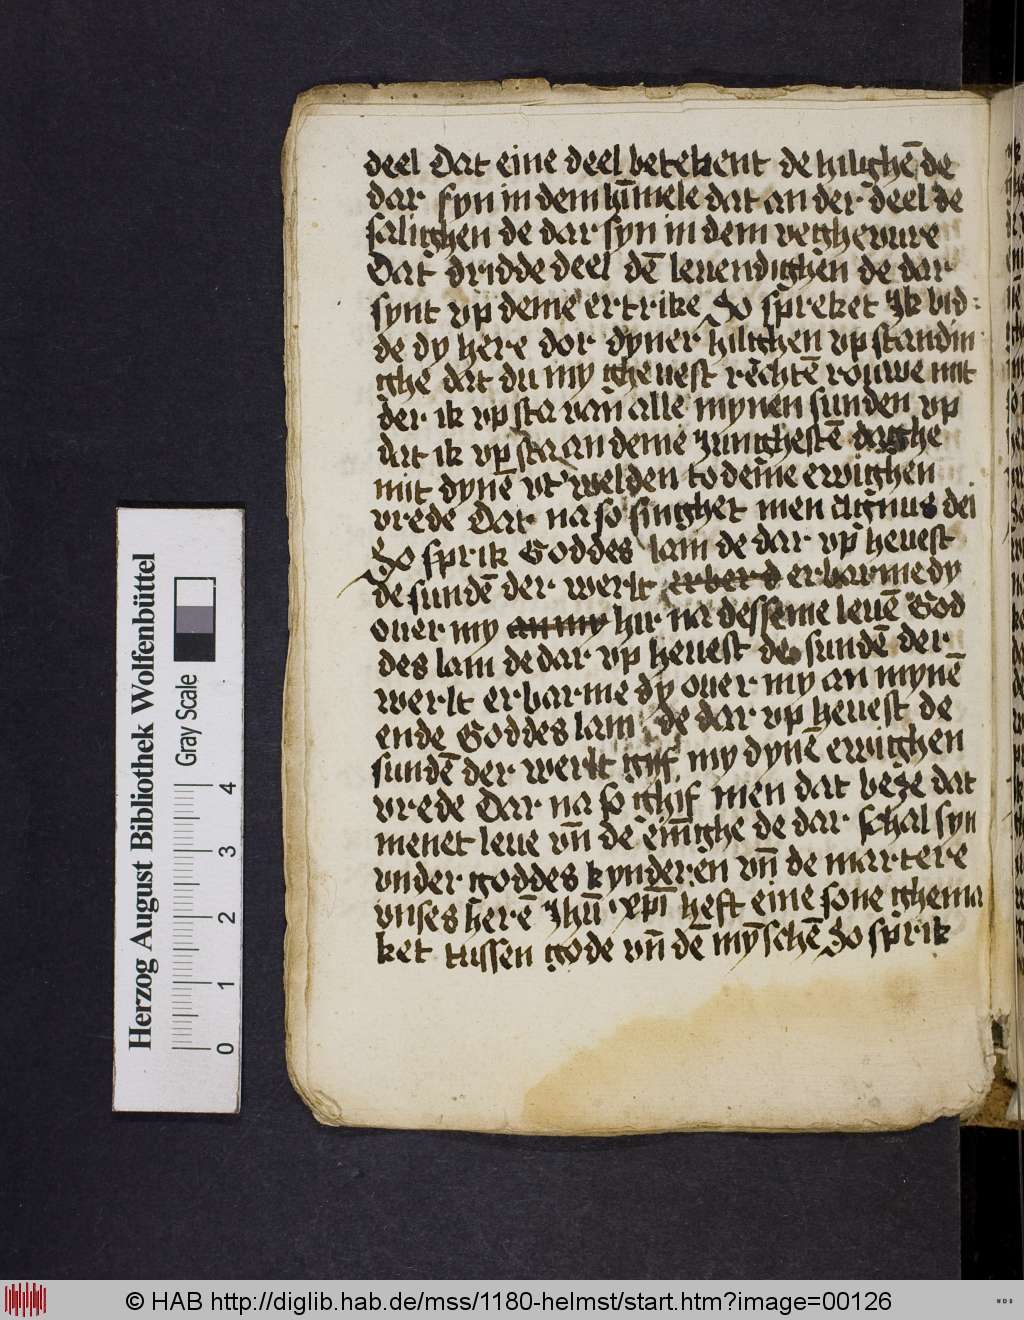 deel Dat eine deel betekent de hilighē de
dar syn in dem hīmele dat an der deel de
salighen de dar syn in dem veghevure
Dat dridde deel dē leuendighen de dar
synt vp deme ertrike So spreket Jk bid
de dy here dor dyner hilighen vp standin
ghe dat du my gheuest rechtē rouwe mit
der ik vp sta van alle mynen sunden vp
dat ik vp sta an deme Junghestē daghe
mit dynē vt welden to deme ewighen
vrede Dar na so singhet men Agnus dei
So sprik Goddes lam de dar vp heuest
de sundē der werlt erber d erbarme dy
ouer my an my hir na desseme leuē God
des lam de dar vp heuest de sundē der
werlt erbarme dy ouer my an mynē
ende Goddes lam de dar vp heuest de
sundē der werlt gif my dynē ewighen
vrede Dar na so ghif men dat beze dat
menet leue vn̄ de enighe de dar schal syn
vnder goddes kynderen vn̄ de martere
vnses herē Jhū xpī heft eine sone ghema
ket tussen gode vn̄ dē mȳschē So sprik
Herzog August Bibliothek Wolfenbüttel
Gray Scale
0 1 2 3 4
© HAB http://diglib.hab.de/mss/1180-helmst/start.htm?image=00126